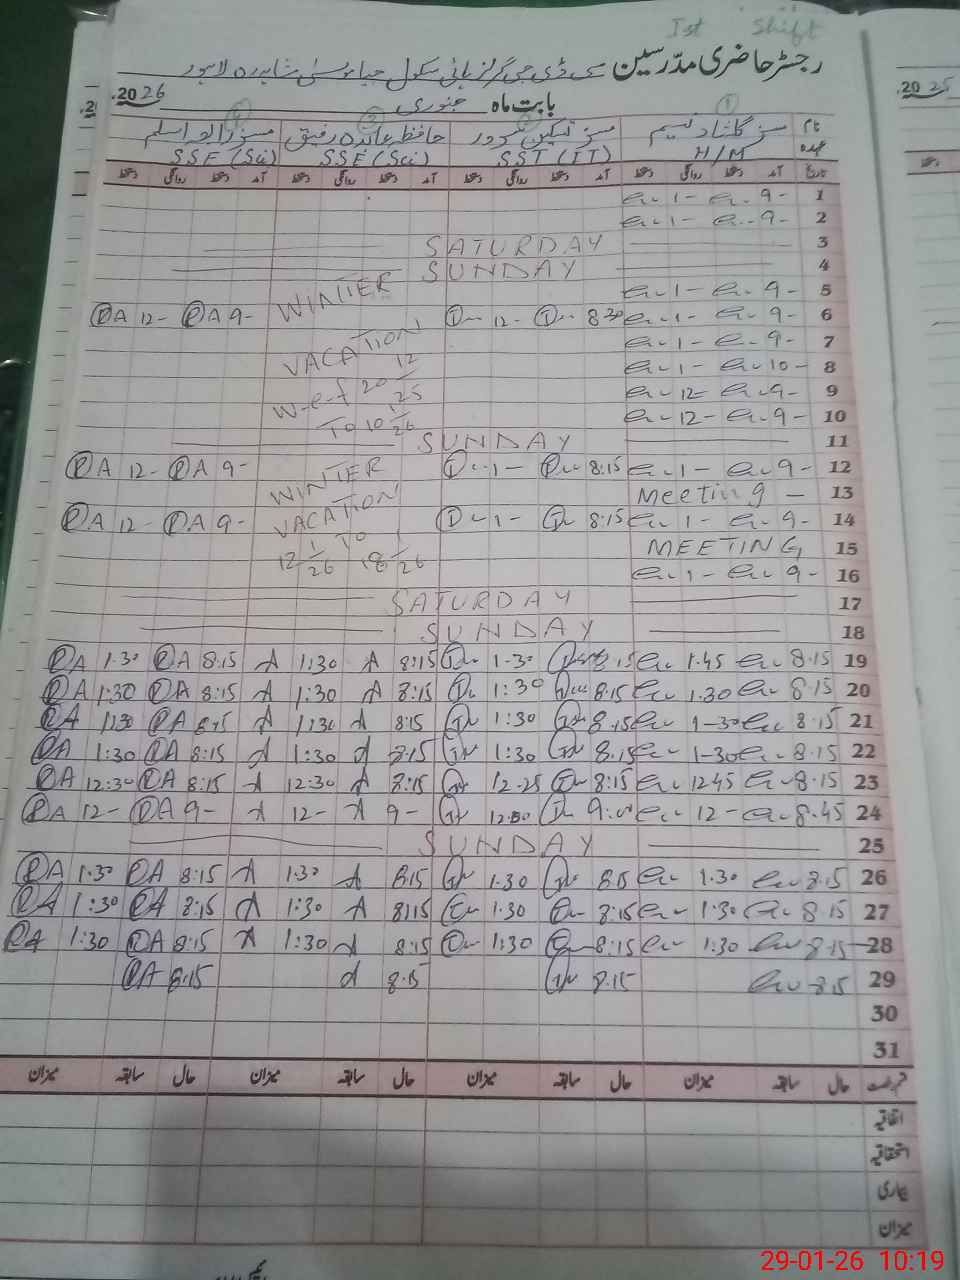 Ist Shift
رجسٹر حاضری مدرسین سی ڈی جی گرلز ہائی سکول جیا موسیٰ شاہدرہ لاہور
بابت ماہ جنوری 2026
20 25
① ② ③ ④
نام مسز گلشاد نسیم حافظہ عائدہ رفیق مسز زاہدہ اسلم
عہدہ H/M SST (IT) SSE (Sci) SSE (Sci)
تاریخ آمد دستخط روانگی دستخط آمد دستخط روانگی دستخط آمد دستخط روانگی دستخط آمد دستخط روانگی دستخط
1 9- 1-
2 9- 1-
3 SATURDAY
4 SUNDAY
5 9- 1- WINTER
6 9- 1- 8 30 12- 9- 12-
7 9- 1- VACATION
8 10- 1- 12
9 9- 12- w-e-f 20 25
10 9- 12- To 10 1/26
11 SUNDAY
12 9- 1- 8:15 1- WINTER 9- 12-
13 Meeting - VACATION
14 9- 1- 8:15 1- 9- 12-
15 MEETING 12 1/26 To 18 1/26
16 9- 1-
17 SATURDAY
18 SUNDAY
19 8.15 1.45 1-30 8:15 1:30 8.15 1.30
20 8.15 1.30 8.15 1:30 8:15 1:30 8:15 1:30
21 8.15 1-30 8.15 1:30 8:15 1:30 8:15 1:30
22 8.15 1-30 8.15 1:30 8:15 1:30 8:15 1:30
23 8.15 1245 8:15 12-25 8:15 12:30 8:15 12:30
24 8.45 12- 9:00 9- 12- 9- 12-
25 SUNDAY
26 8.15 1.30 8.15 1.30 8.15 1.30 8:15 1.30
27 8.15 1:30 8:15 1.30 8:15 1:30 8:15 1:30
28 8.15 1:30 8:15 1:30 8:15 1:30 8:15 1:30
29 8.15 8.15 8.15 8.15
30
31
حال سابقہ میزان حال سابقہ میزان حال سابقہ میزان حال سابقہ میزان
اتفاقیہ
استحقاقیہ
بیماری
میزان
29-01-26 10:19